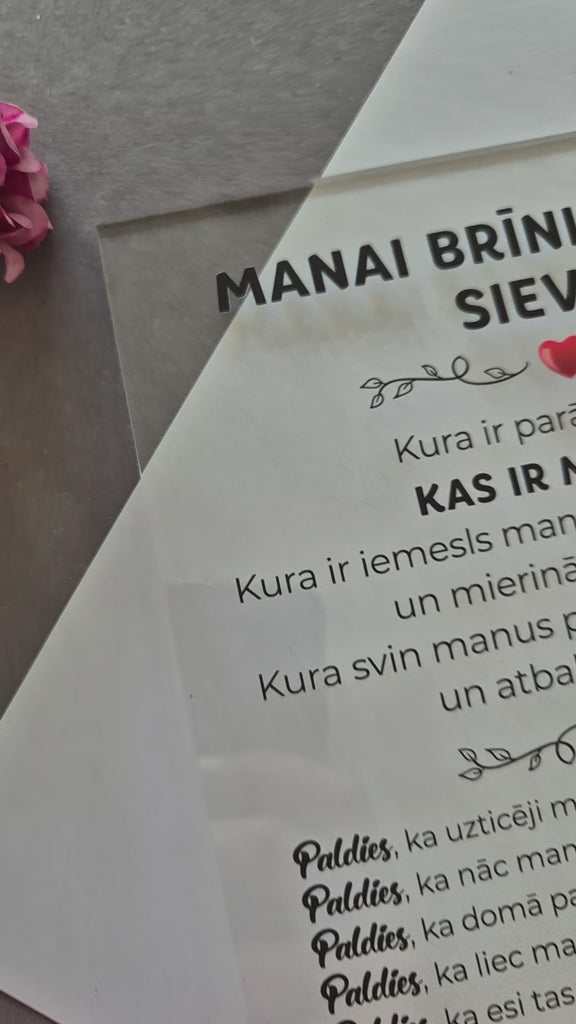 MANAI BRĪNI
SIEV
Kura ir parā
KAS IR N
Kura ir iemesls man
un mierinā
Kura svin manus p
un atbal
Paldies, ka uzticēji m
Paldies, ka nāc man
Paldies, ka domā pa
Paldies, ka liec ma
Paldies, ka esi tas